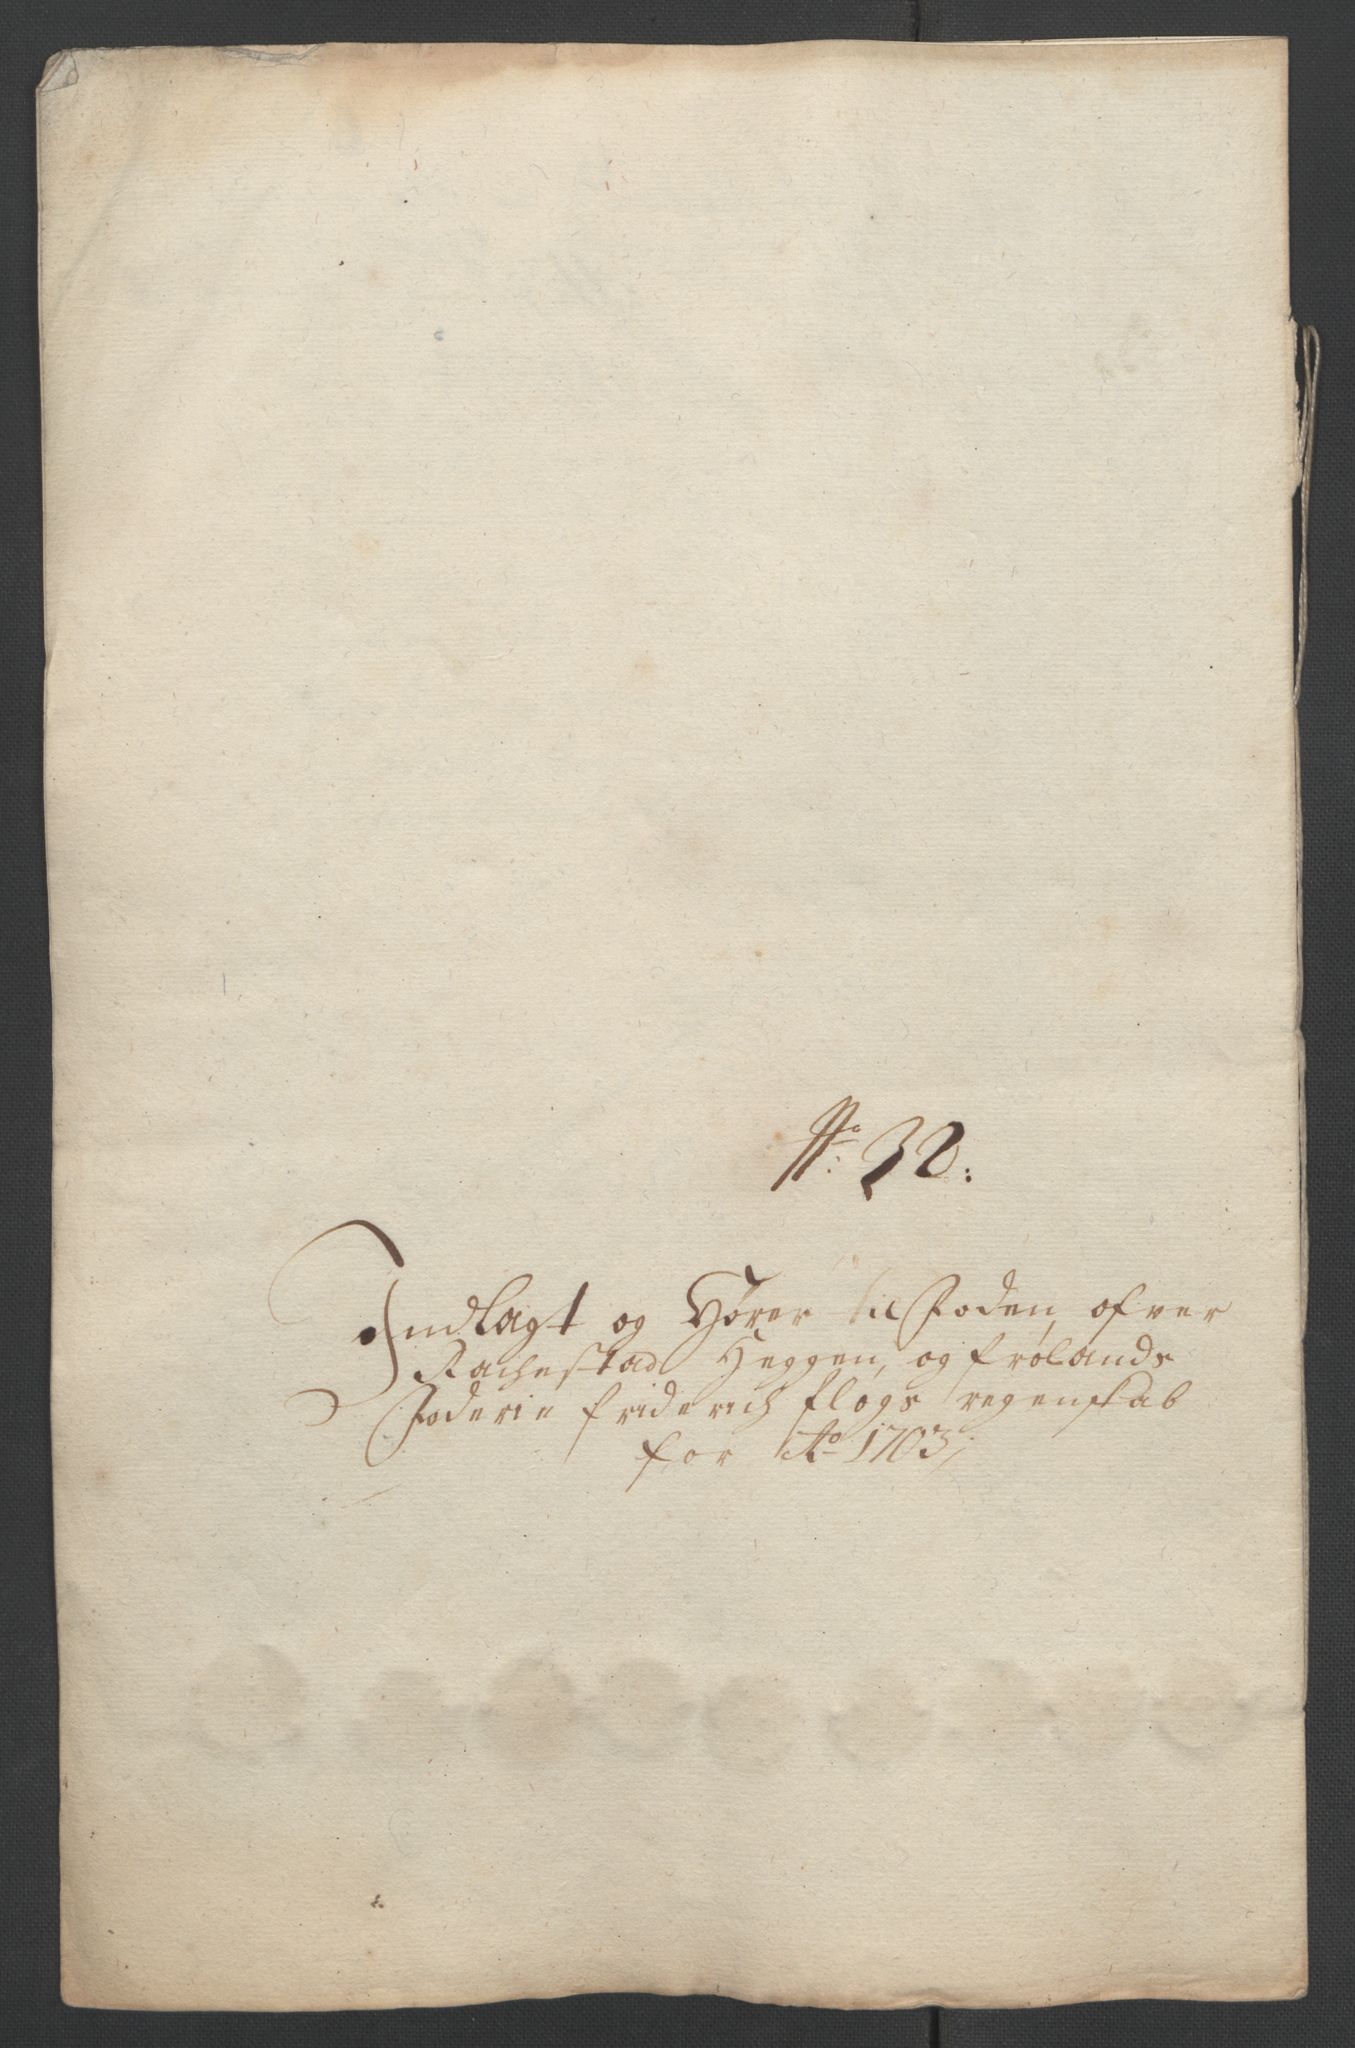 No: 32:
Indlagt og Hører til Foden, ofver
Rachestad Heggen, og Frølands
Foderie Friderich Flogs regenskab
for Ao 1703;